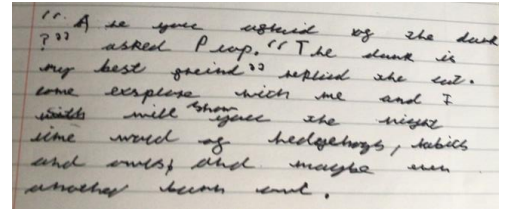 “ A re you afraid of the dark
?” asked Plop. “ The dark is
my best freind ” replied the cat.
come explore with me and I
will show you the night
time world of hedgehogs, rabits
and owls, and maybe even
another barn owl.